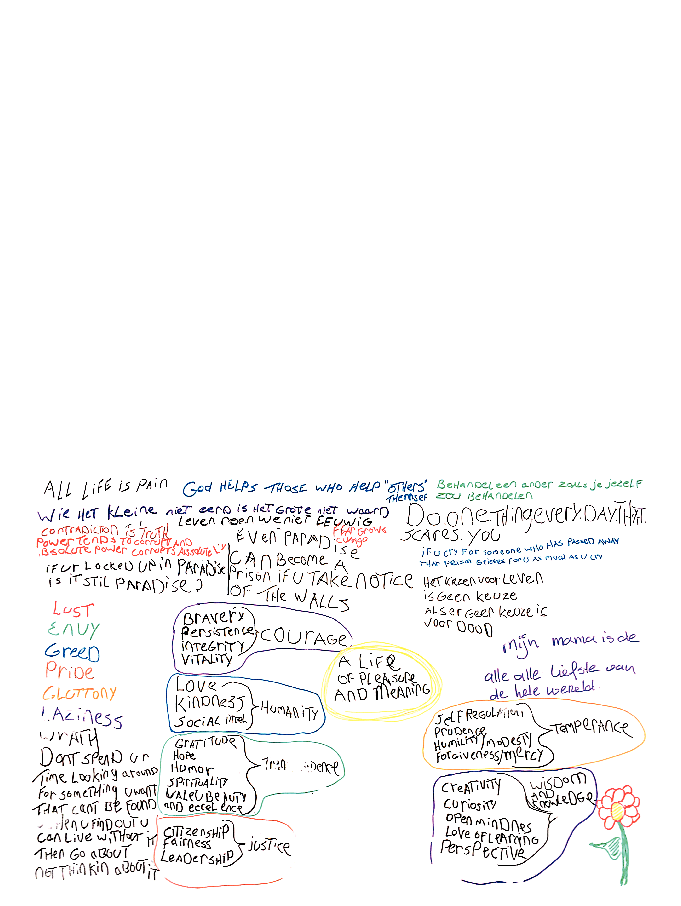 ALL LIFE IS PAIN
GOD HELPS THOSE WHO HELP "OTHERS"
THEMSELF
BEHANDEL EEN ANDER ZOALS JE JEZELF
ZOU BEHANDELEN
WIE HET KLEINE NIET EERD IS HET GROTE NIET WAARD
LEVEN EEUWIG
CONTRADICTION IS TRUTH
POWER TENDS TO CORRUPT AND
ABSOLUTE POWER CORRUPTS
FEAR GROWS
EVEN PARADISE
CAN BECOME A
PRISON IF U TAKE NOTICE
OF THE WALLS
DO ONE THING EVERY DAY THAT
SCARES YOU
IF UR LOCKED UP IN PARADISE
IS IT STIL PARADISE?
IF U CRY FOR SOMEONE WHO HAS PASSED AWAY
THAT PERSON GRIEVES FOR U AS MUCH AS U CRY
HET KIEZEN VOOR LEVEN
IS GEEN KEUZE
ALS ER GEEN KEUZE IS
VOOR DOOD
mijn mama is de
alle alle liefste van
de hele wereld
LUST
ENVY
GREED
PRIDE
GLUTTONY
LAZINESS
WRATH
BRAVERY
PERSISTENCE
INTEGRITY
VITALITY
COURAGE
A LIFE
OF PLEASURE
AND MEANING
LOVE
KINDNESS
SOCIAL
HUMANITY
GRATITUDE
HOPE
HUMOR
SPIRITUALITY
VALEU BEAUTY
AND EXCELENCE
CITIZENSHIP
FAIRNESS
LEADERSHIP
JUSTICE
DONT SPEND UR
TIME LOOKING AROUND
FOR SOMETHING U WANT
THAT CANT BE FOUND
WHEN U FIND OUT U
CAN LIVE WITHOUT IT
THEN GO ABOUT
NOT THINKIN ABOUT IT
SELF REGULATION
PRUDENCE
HUMILITY/MODESTY
FORGIVENESS/MERCY
TEMPERANCE
CREATIVITY
CURIOSITY
OPEN MINDNES
LOVE OF LEARNING
PERSPECTIVE
WISDOM
AND
KNOWLEDGE